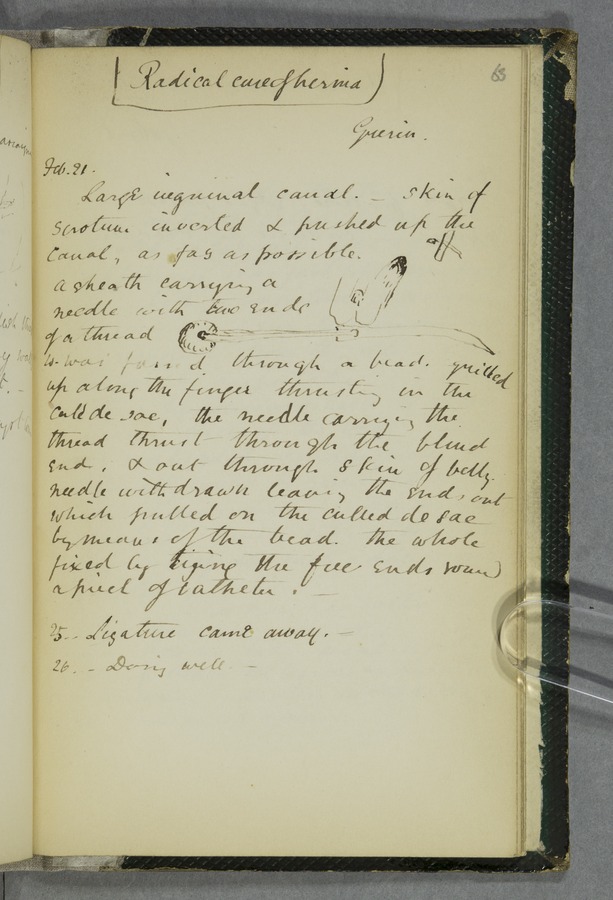 63
Radical cure of hernia
Guerin.
Feb. 21.
Large inguinal canal. _ Skin of
scrotum inverted & pushed up the
canal, as far as possible.
a sheath carrying a
needle with two ends
of a thread
was passed through a bead.
up along the finger thrusting in the
culdde sac, the needle carrying the
thread thrust through the blind
end, & out through skin of belly.
needle withdrawn leaving the ends out
which pulled on the culled de sac
by means of the bead. the whole
fixed by tying the free ends round
a piece of catheter. _
25 - Ligature came away. -
26. - Doing well -